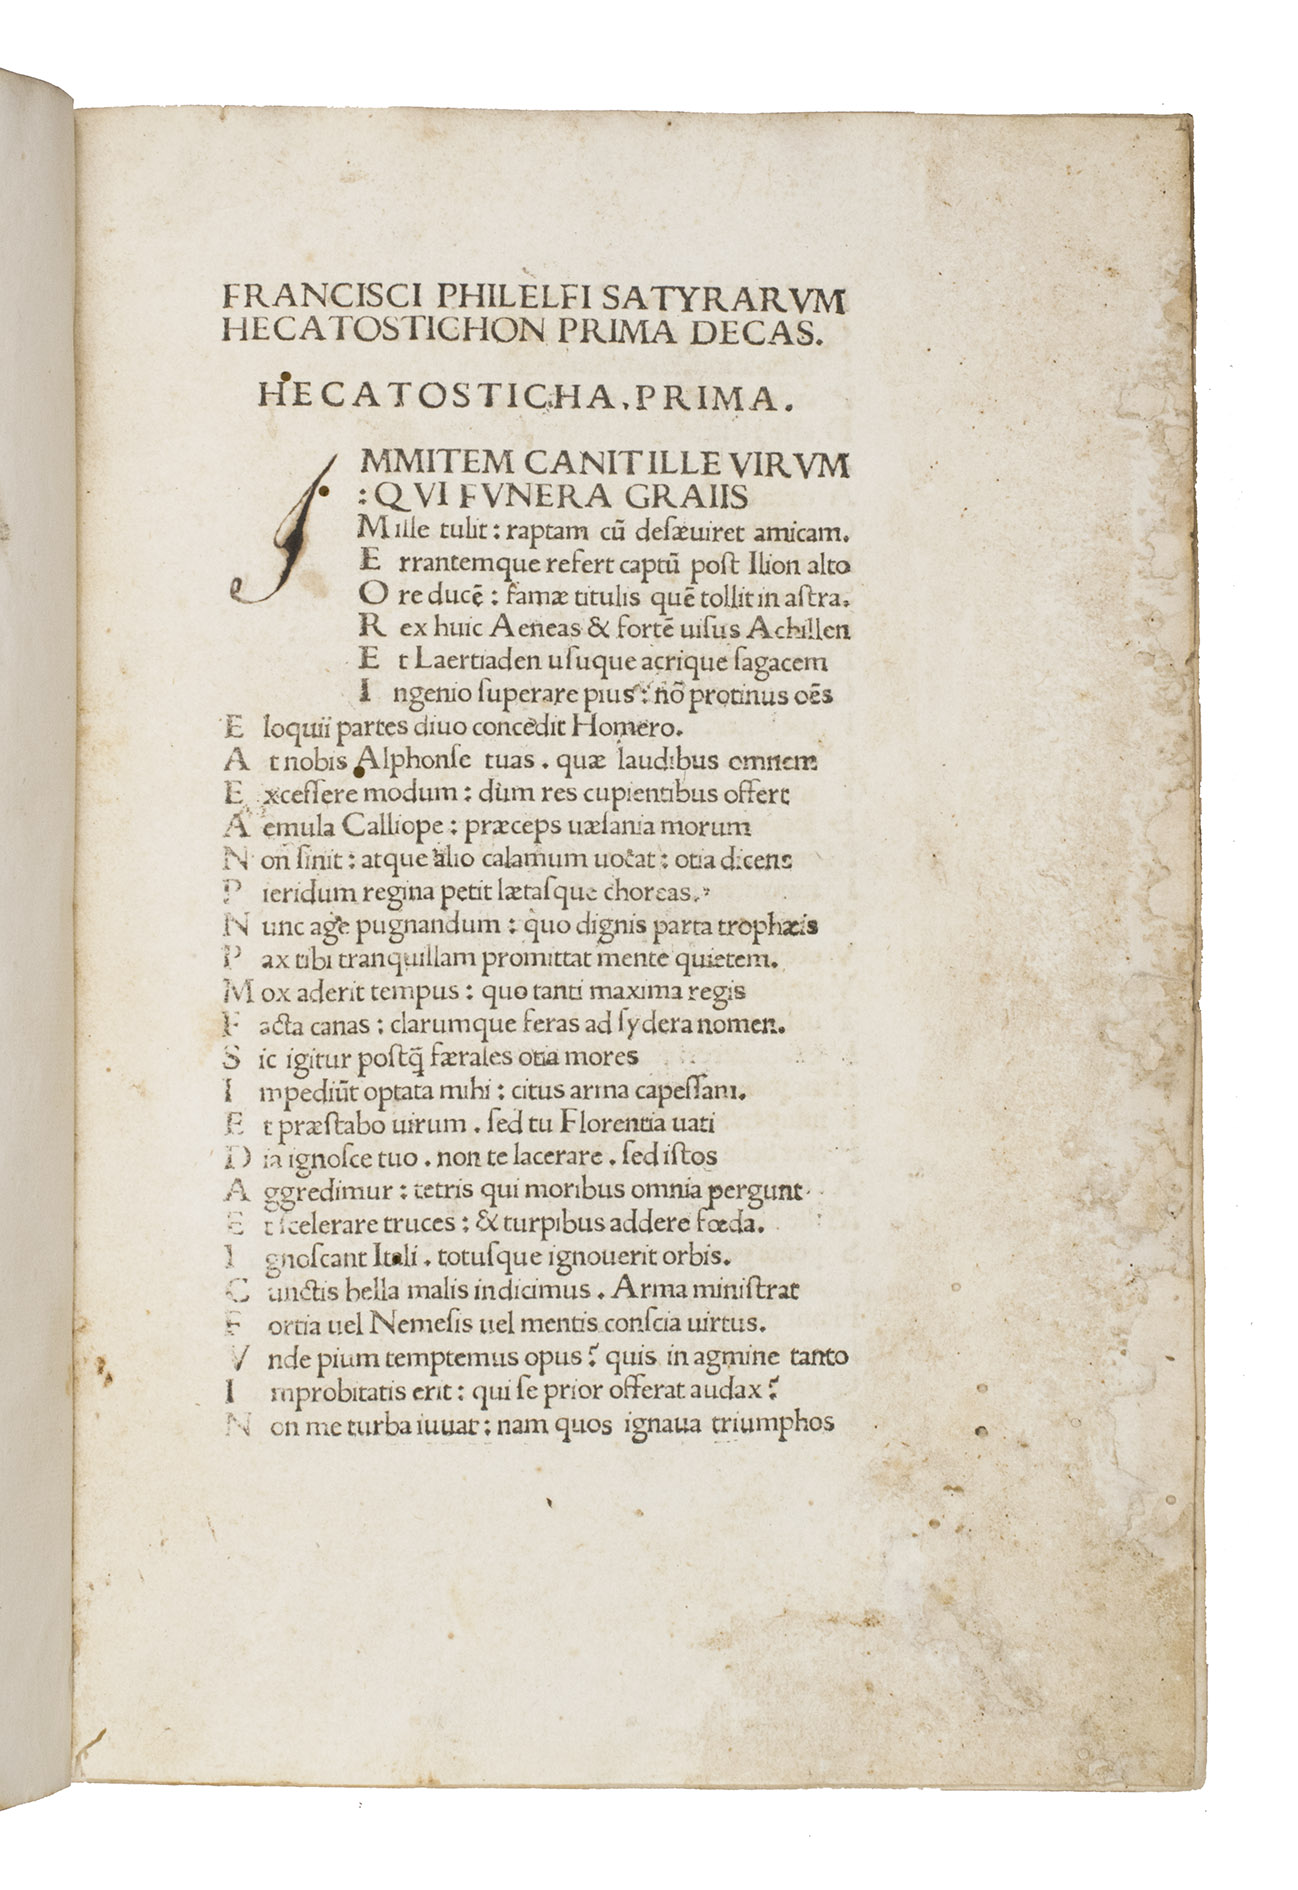 FRANCISCI PHILELFI SATYRARVM
HECATOSTICHON PRIMA DECAS.
HECATOSTICHA.PRIMA.
IMMITEM CANIT ILLE VIRVM
:QVI FVNERA GRAIIS
Mille tulit: raptam cū desæuiret amicam.
Errantemque refert captū post Ilion alto
Ore ducē: famæ titulis quē tollit in astra.
Rex huic Aeneas & fortē uisus Achillen
Et Laertiaden usuque acrique sagacem
Ingenio superare pius: nō protinus oēs
Eloquii partes diuo concedit Homero.
At nobis Alphonse tuas. quæ laudibus omnem
Excessere modum: dum res cupientibus offert
Aemula Calliope: præceps uæsania morum
Non sinit: atque alio calamum uocat: otia dicens
Pieridum regina petit lætasque choreas.
Nunc age pugnandum: quo dignis parta trophæis
Pax tibi tranquillam promittat mente quietem.
Mox aderit tempus: quo tanti maxima regis
Facta canas: clarumque feras ad sydera nomen.
Sic igitur postq̄ færales otia mores
Impediūt optata mihi: citus arma capessam.
Et præstabo uirum. sed tu Florentia uati
Dia ignosce tuo. non te lacerare. sed istos
Aggredimur: tetris qui moribus omnia pergunt
Et scelerare truces: & turpibus addere fœda.
Ignoscant Itali. totusque ignouerit orbis.
Cunctis bella malis indicimus. Arma ministrat
Fortia uel Nemesis uel mentis conscia uirtus.
Vnde pium temptemus opus? quis in agmine tanto
Improbitatis erit: qui se prior offerat audax?
Non me turba iuuat: nam quos ignaua triumphos